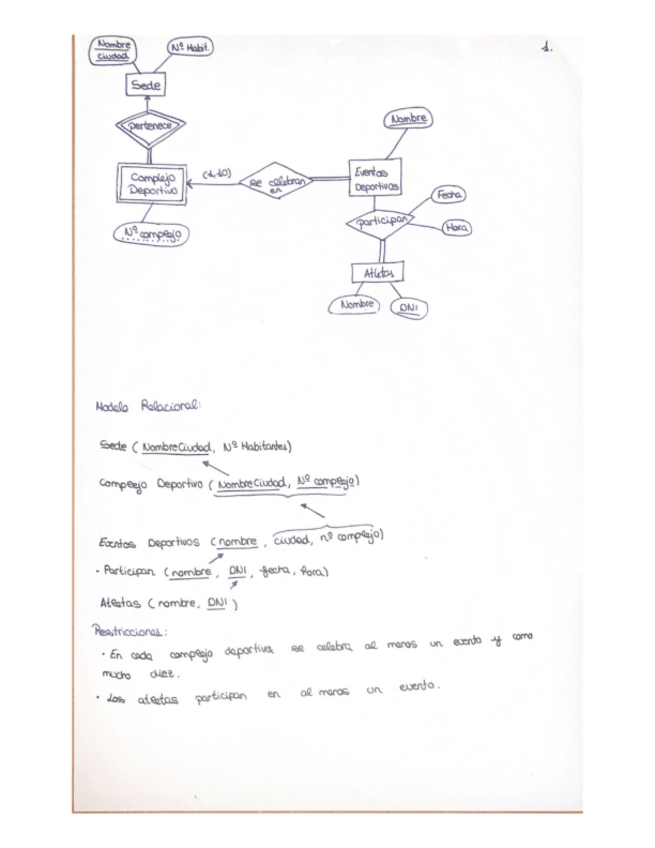 1.
Nombre
ciudad
Nº Habit.
Sede
pertenece
Nombre
Complejo
Deportivo
(1,10)
se celebran
en
Eventos
Deportivos
Fecha
participan
Hora
Nº complejo
Atletas
Nombre
DNI
Modelo Relacional:
Sede (NombreCiudad, Nº Habitantes)
Complejo Deportivo (NombreCiudad, Nº complejo)
Eventos Deportivos (nombre, ciudad, nº complejo)
- Participan (nombre, DNI, fecha, hora)
Atletas (nombre, DNI)
Restricciones:
· En cada complejo deportivo se celebra al menos un evento y como
mucho diez.
· Los atletas participan en al menos un evento.